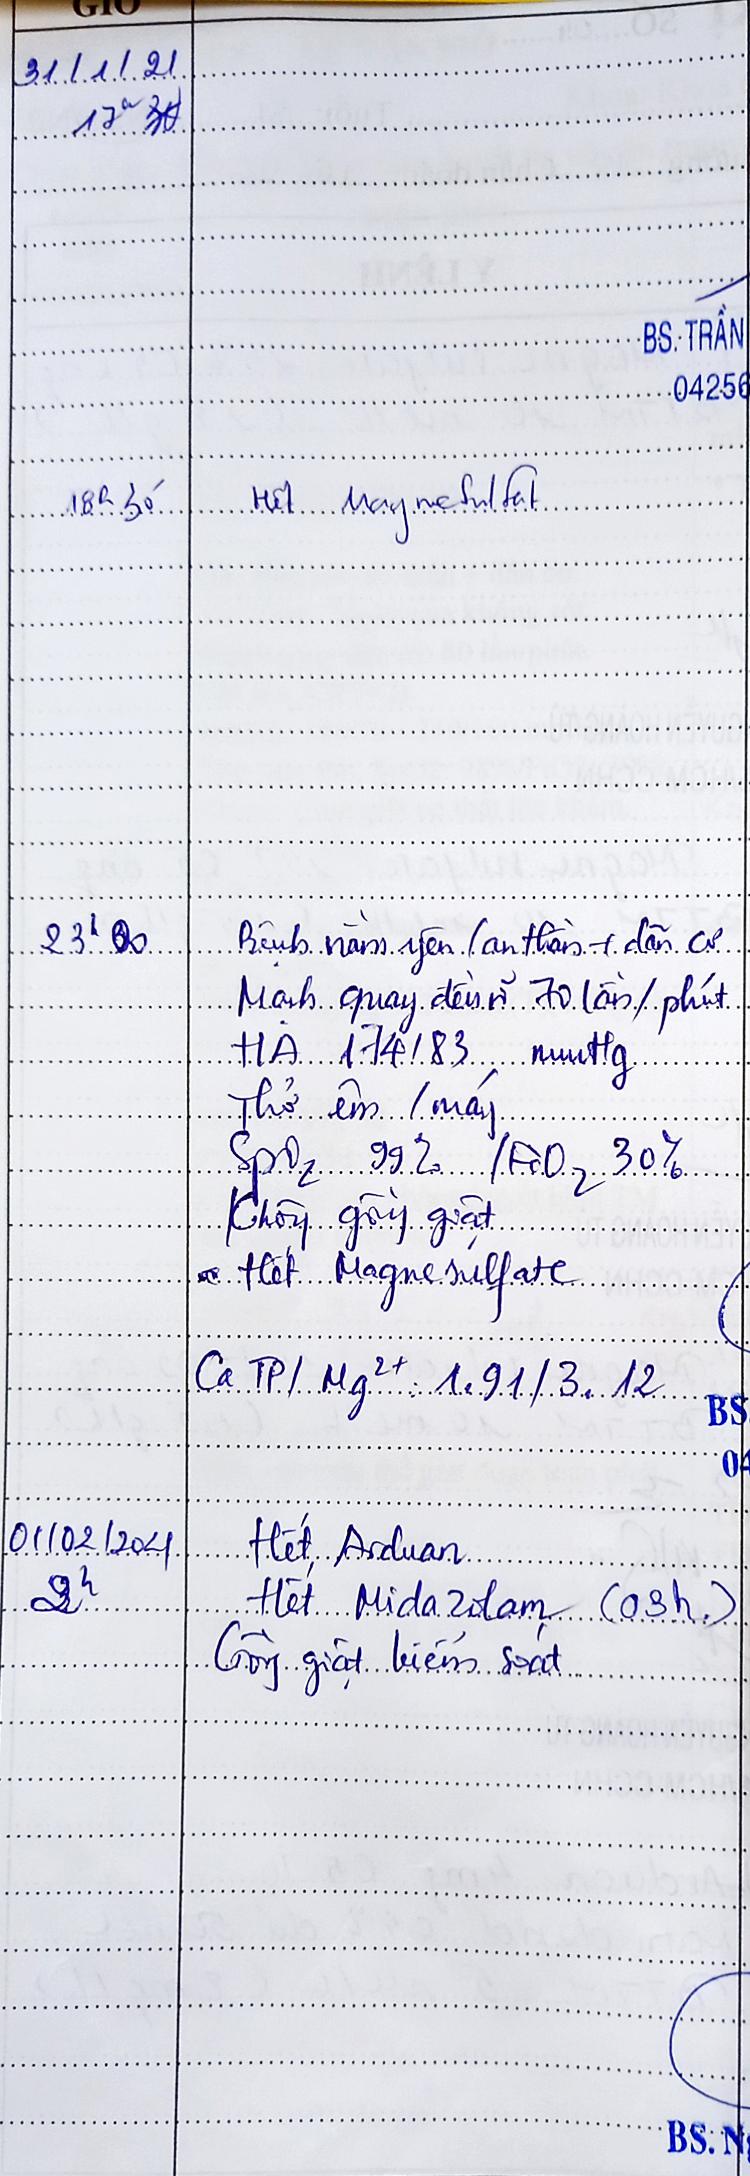 GIỜ
31/1/21
17h 30
BS. TRẦN
04256
18h 30 Hết Magnesulfat
23h 00 Bệnh nằm yên / an thần + dãn cơ
Mạch quay đều rõ 70 lần / phút
HA 174/83 mmHg
Thở êm / máy
SpO2 99% / FiO2 30%
Không gồng giật
Hết Magnesulfate
Ca TP / Mg2+: 1.91/3.12
BS.
04
01/02/2021 Hết Arduan
2h Hết Midazolam (03h.)
Gồng giật kiểm soát
BS. Ng